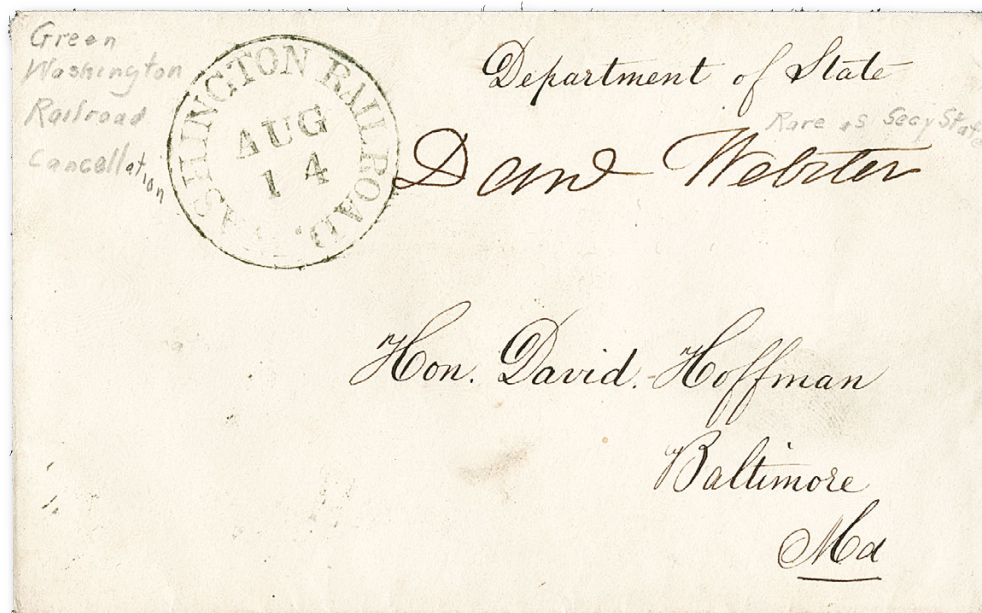 Green
Washington
Railroad
Cancellation
WASHINGTON RAILROAD.
AUG
14
Department of State
Rare as Secy State
Danl Webster
Hon. David. Hoffman
Baltimore
Md